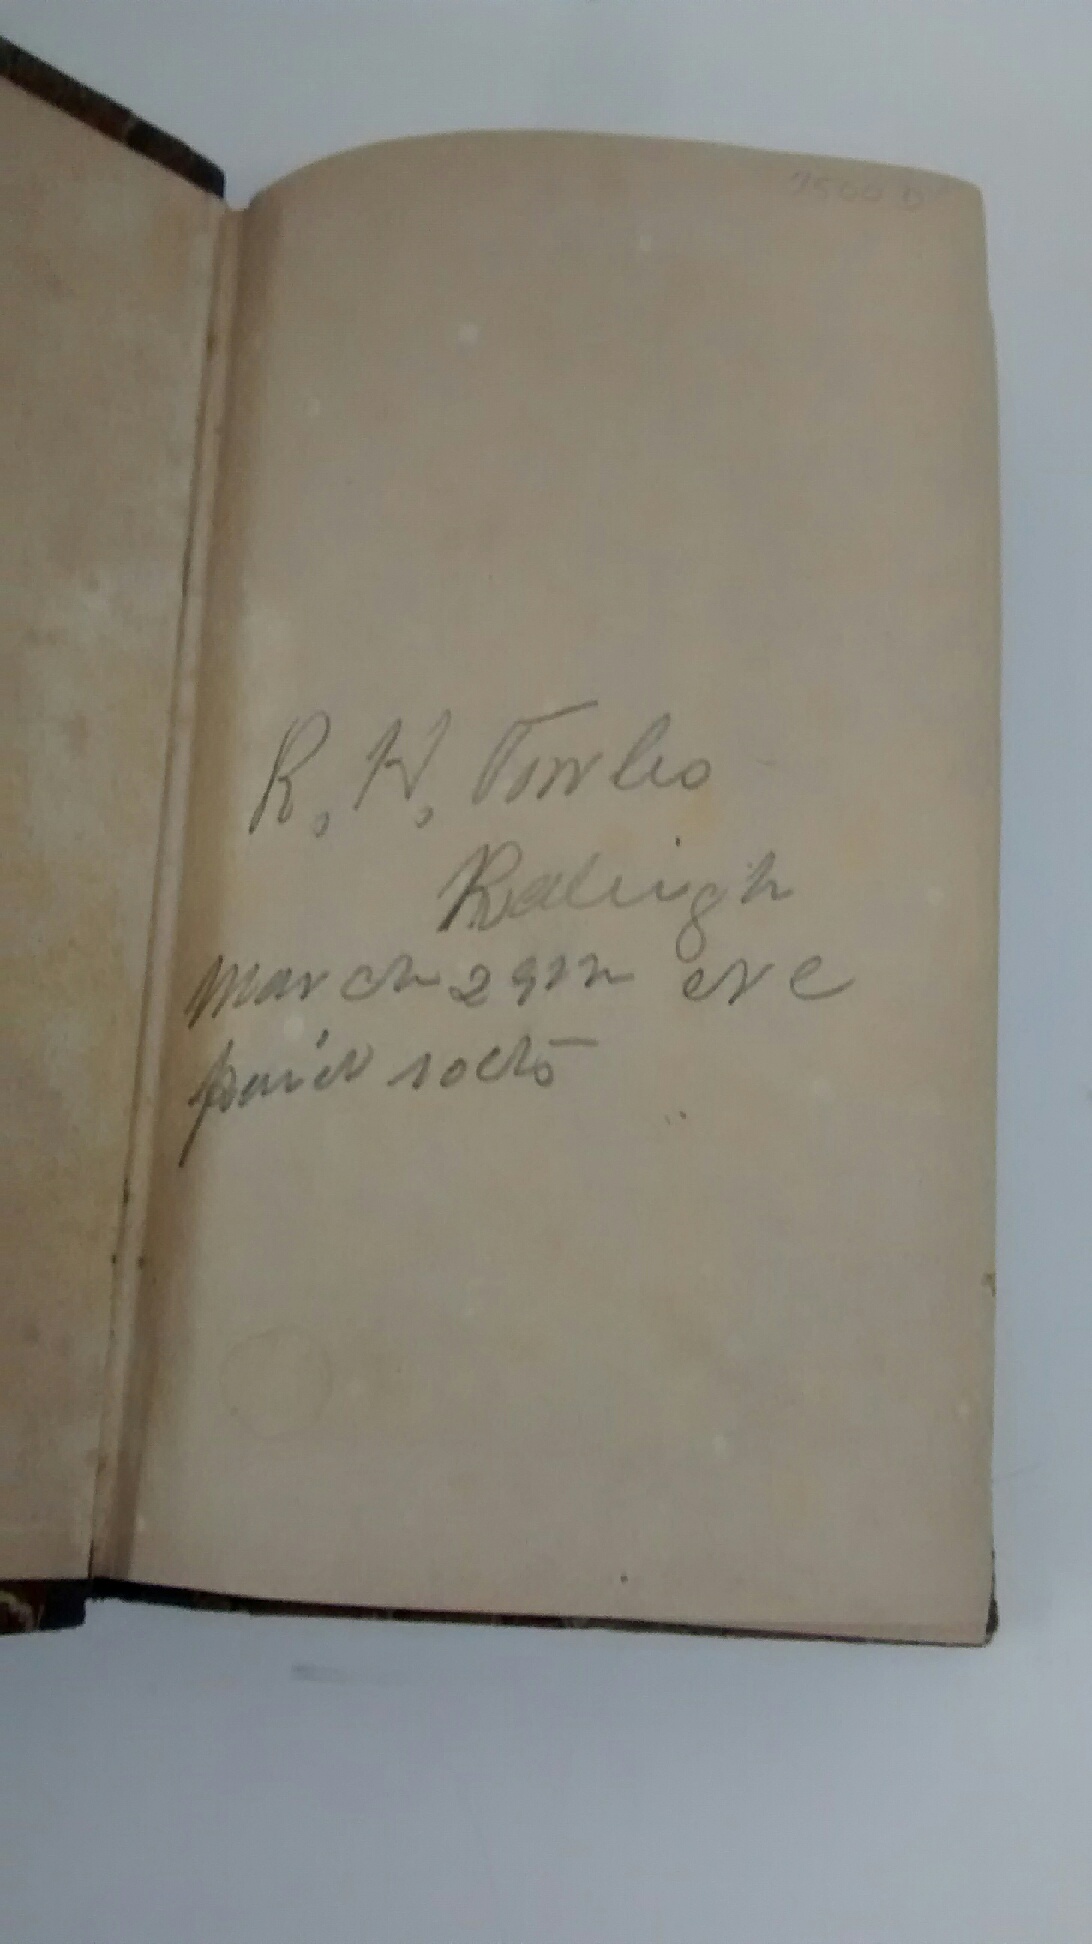 R. H. Towles
Raleigh
March 29th eve
paid 10cts